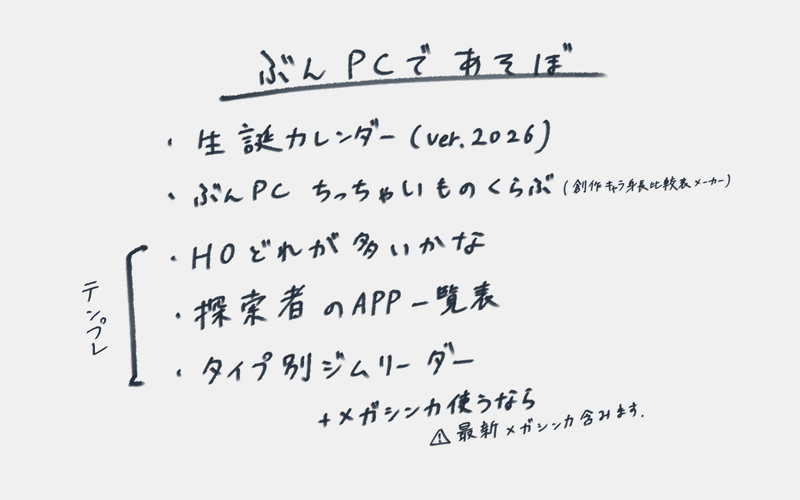 ぶんPCであそぼ
・生誕カレンダー(ver.2026)
・ぶんPC ちっちゃいものくらぶ(創作キャラ身長比較表メーカー)
テンプレ
・HOどれが多いかな
・探索者のAPP一覧表
・タイプ別ジムリーダー
+メガシンカ使うなら
⚠最新メガシンカ含みます.